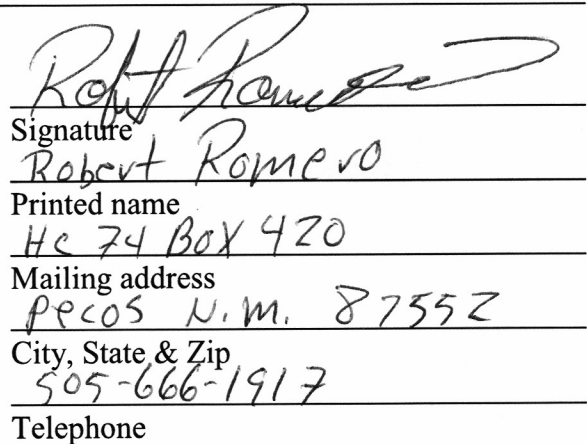 Robert Romero
Signature
Robert Romero
Printed name
HC 74 BOX 420
Mailing address
Pecos N.M. 87552
City, State & Zip
505-666-1917
Telephone